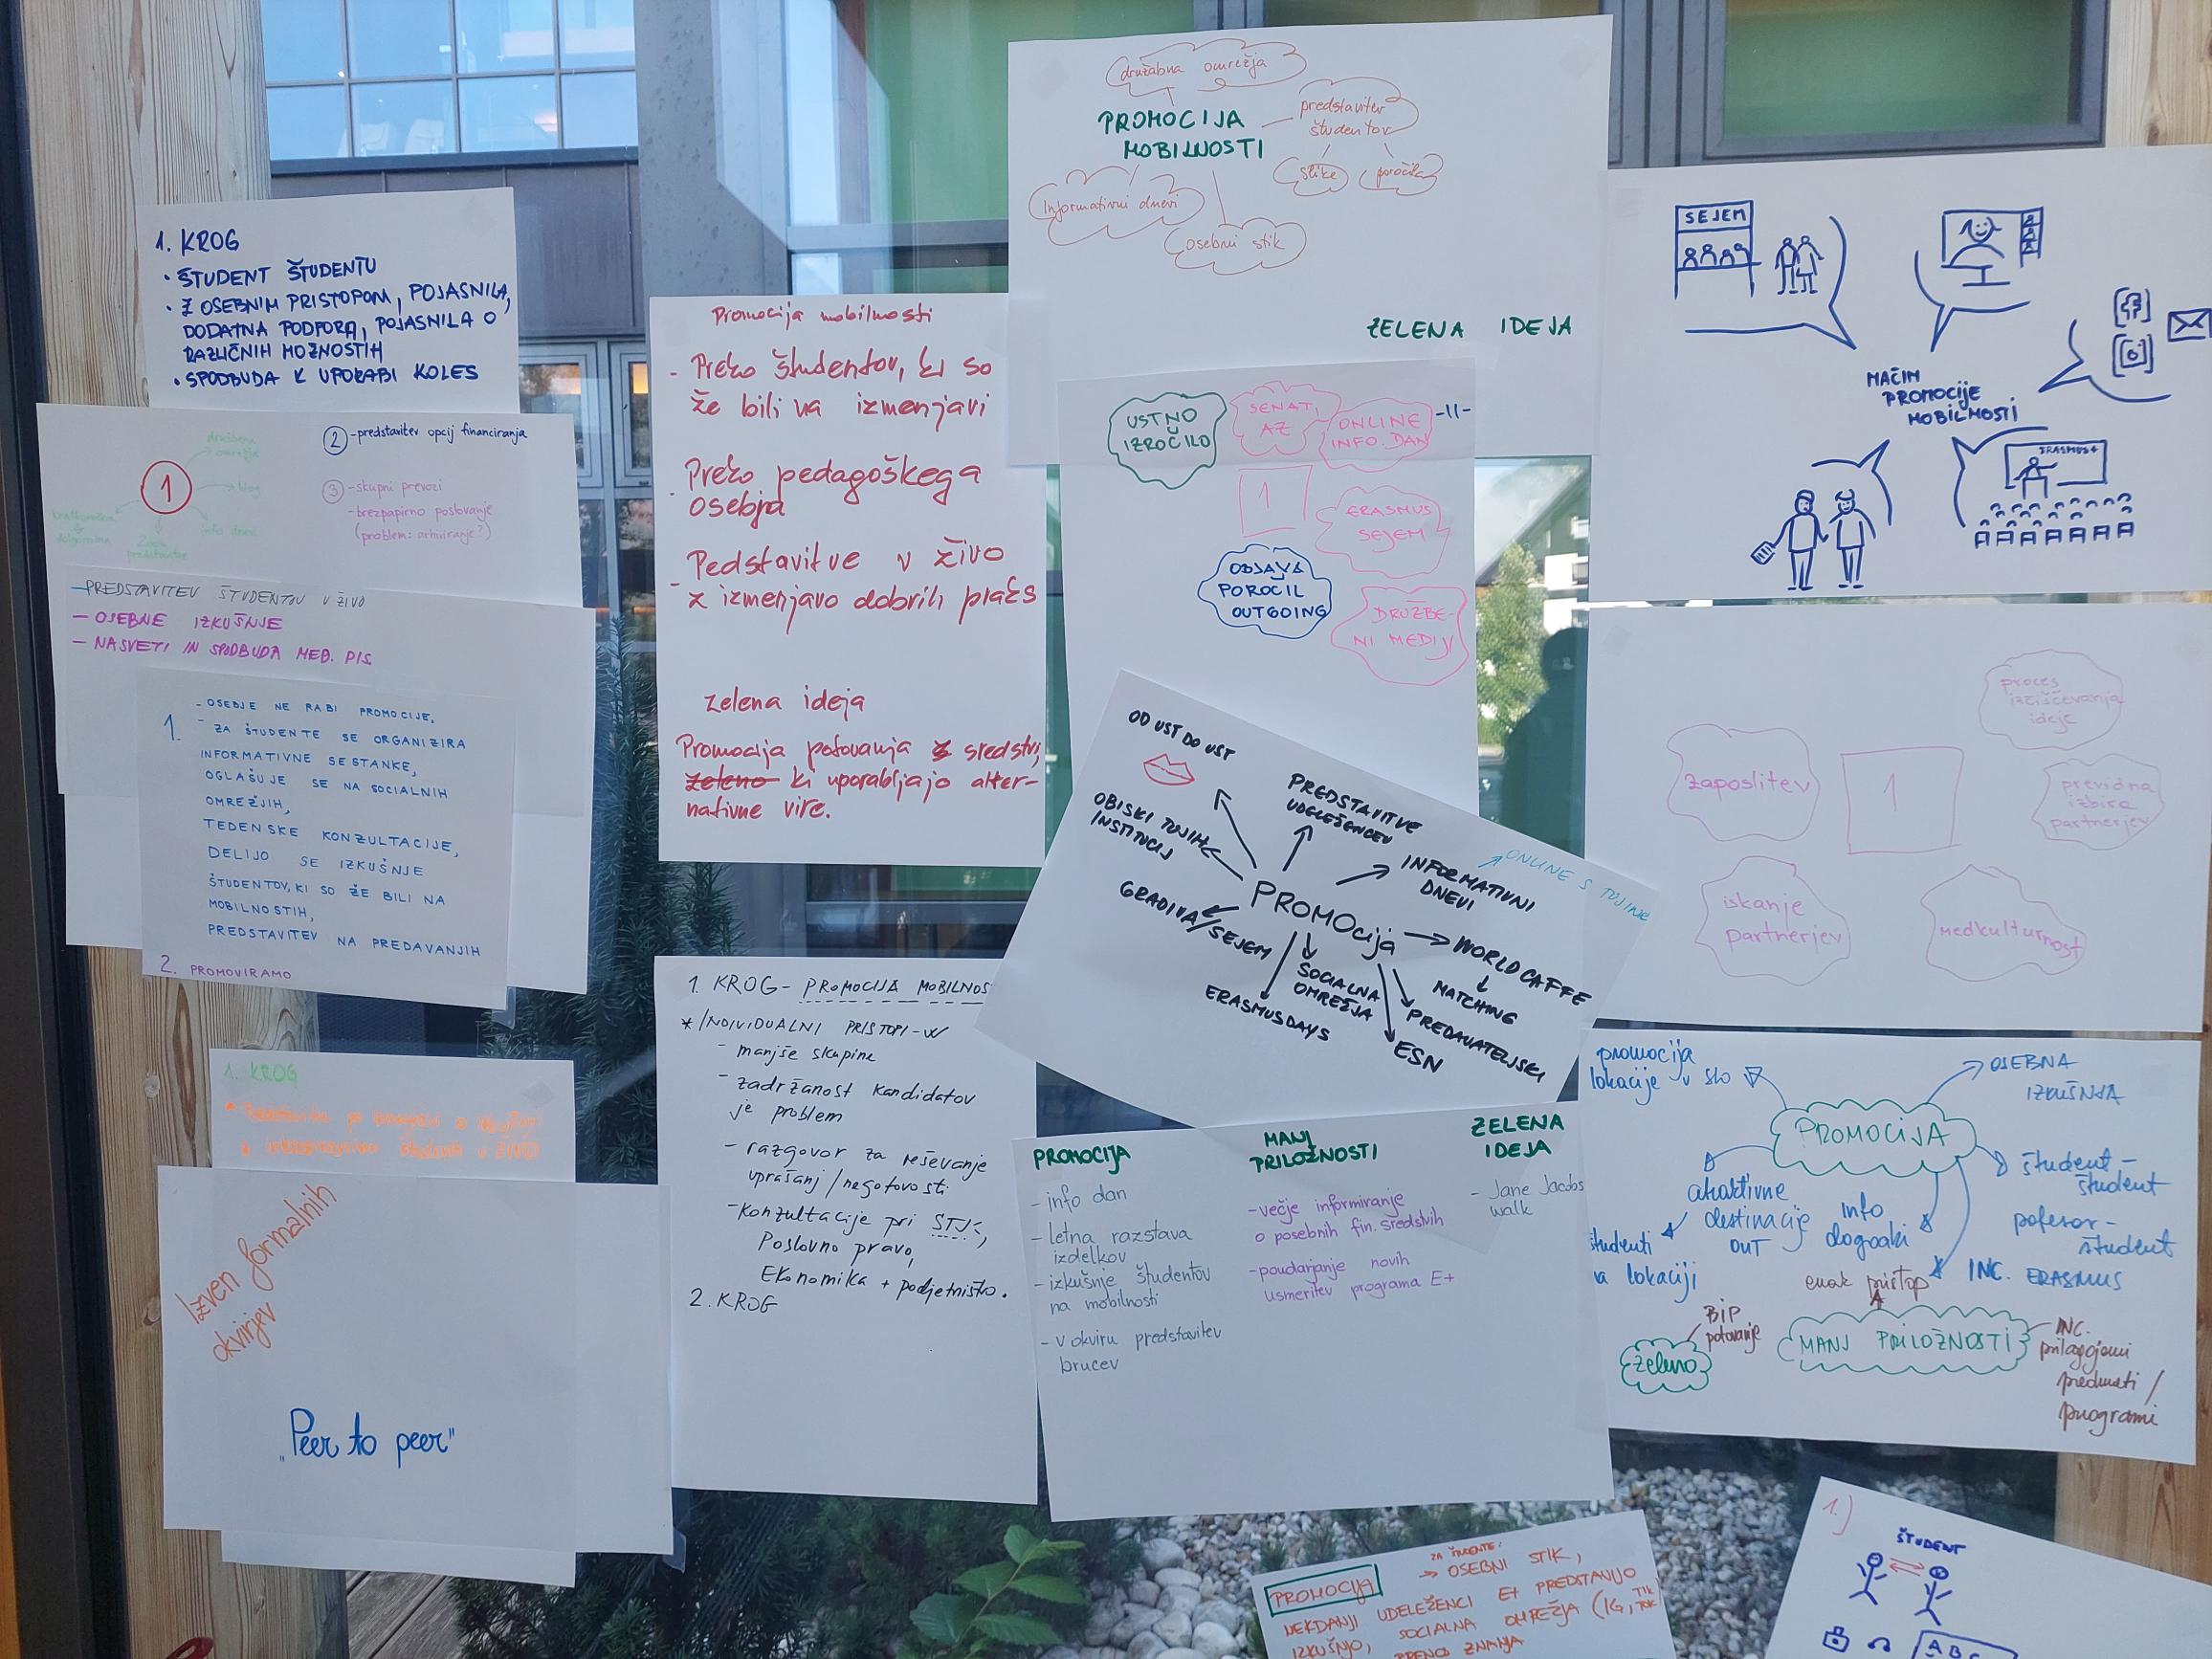 1. KROG
• ŠTUDENT ŠTUDENTU
• Z OSEBNIM PRISTOPOM, POJASNILA,
DODATNA PODPORA, POJASNILA O
RAZLIČNIH MOŽNOSTIH
• SPODBUDA K UPORABI KOLES
1
družbena
omrežja
blog
info dnevi
② - predstavitev opcij financiranja
③ - skupni prevozi
- brezpapirno poslovanje
(problem: arhiviranje?)
- PREDSTAVITEV ŠTUDENTOV V ŽIVO
- OSEBNE IZKUŠNJE
- NASVETI IN SPODBUDA MED. PIS.
1.
- OSEBJE NE RABI PROMOCIJE,
- ZA ŠTUDENTE SE ORGANIZIRA
INFORMATIVNE SESTANKE,
OGLAŠUJE SE NA SOCIALNIH
OMREŽJIH,
TEDENSKE KONZULTACIJE,
DELIJO SE IZKUŠNJE
ŠTUDENTOV, KI SO ŽE BILI NA
MOBILNOSTIH,
PREDSTAVITEV NA PREDAVANJIH
2. PROMOVIRAMO
1. KROG
Izven formalnih
okvirjev
"Peer to peer"
Promocija mobilnosti
- Preko študentov, ki so
že bili na izmenjavi
- Preko pedagoškega
osebja
- Pedstavitve v živo
z izmenjavo dobrih praks
zelena ideja
Promocija potovanja s sredstvi,
zeleno ki uporabljajo alter-
nativne vire.
1. KROG - PROMOCIJA MOBILNOS
* INDIVIDUALNI PRISTOPI -
- manjše skupine
- zadržanost kandidatov
je problem
- razgovor za reševanje
vprašanj / negotovosti
- Konzultacije pri STJK,
Poslovno pravo,
Ekonomika + podjetništvo.
2. KROG
družabna omrežja
PROMOCIJA
MOBILNOSTI
predstavitev
študentov
slike
poročila
Informativni dnevi
osebni stik
ZELENA IDEJA
USTNO
IZROČILO
SENATI,
AZ
ONLINE
INFO. DAN
-11-
1
ERASMUS
SEJEM
OBJAVA
POROČIL
OUTGOING
DRUŽBE-
NI MEDIJI
OD UST DO UST
PREDSTAVITVE
UDELEŽENCEV
OBISKI TUJIH
INSTITUCIJ
INFORMATIVNI
DNEVI
ONLINE S TUJINE
GRADIVA/SEJEM
PROMOcija
WORLD CAFFE
MATCHING
SOCIALNA
OMREŽJA
ERASMUSDAYS
PREDAVATELJSKI
ESN
PROMOCIJA
- info dan
- letna razstava
izdelkov
- izkušnje študentov
na mobilnosti
- v okviru predstavitev
brucev
MANJ
PRILOŽNOSTI
- večje informiranje
o posebnih fin. sredstvih
- poudarjanje novih
usmeritev programa E+
ZELENA
IDEJA
- Jane Jacobs
walk
SEJEM
NAČIN
PROMOCIJE
MOBILNOSTI
ERASMUS+
proces
izčiščevanja
ideje
zaposlitev
1
previdna
izbira
partnerjev
iskanje
partnerjev
medkulturnost
promocija
lokacije v slo
OSEBNA
IZKUŠNJA
PROMOCIJA
atraktivne
destinacije
OUT
info
dogodki
študent -
študent
profesor -
študent
študenti
na lokaciji
INC. ERASMUS
enak pristop
BIP
potovanje
zeleno
MANJ PRILOŽNOSTI
INC.
prilagojeni
predmeti /
programi
PROMOCIJA
ZA ŠTUDENTE:
→ OSEBNI STIK,
NEKDANJI UDELEŽENCI E+ PREDSTAVIJO
IZKUŠNJO, SOCIALNA OMREŽJA (IG, TIK TOK)
PRENOS ZNANJA
1.)
ŠTUDENT
A B